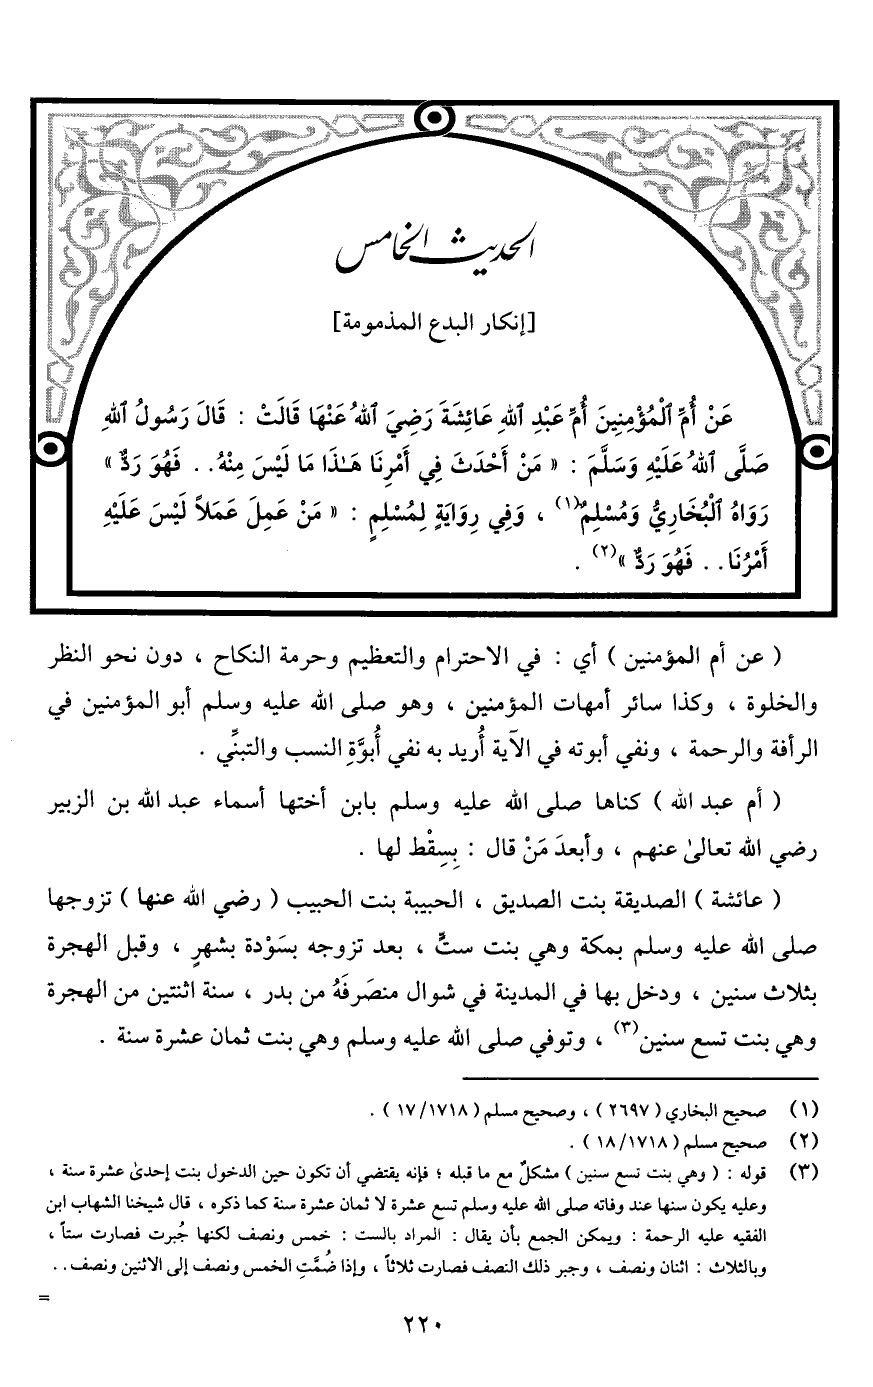 الحديث الخامس
[إنكار البدع المذمومة]
عَنْ أُمِّ ٱلْمُؤْمِنِينَ أُمِّ عَبْدِ ٱللهِ عَائِشَةَ رَضِيَ ٱللهُ عَنْهَا قَالَتْ : قَالَ رَسُولُ ٱللهِ
صَلَّى ٱللهُ عَلَيْهِ وَسَلَّمَ : « مَنْ أَحْدَثَ فِي أَمْرِنَا هَـٰذَا مَا لَيْسَ مِنْهُ. . فَهُوَ رَدٌّ »
رَوَاهُ ٱلْبُخَارِيُّ وَمُسْلِمٌ(١) ، وَفِي رِوَايَةٍ لِمُسْلِمٍ : « مَنْ عَمِلَ عَمَلاً لَيْسَ عَلَيْهِ
أَمْرُنَا. . فَهُوَ رَدٌّ »(٢) .
( عن أم المؤمنين ) أي : في الاحترام والتعظيم وحرمة النكاح ، دون نحو النظر
والخلوة ، وكذا سائر أمهات المؤمنين ، وهو صلى الله عليه وسلم أبو المؤمنين في
الرأفة والرحمة ، ونفي أبوته في الآية أُريد به نفي أُبوَّةِ النسب والتبنِّي .
( أم عبد الله ) كناها صلى الله عليه وسلم بابن أختها أسماء عبد الله بن الزبير
رضي الله تعالىٰ عنهم ، وأبعدَ مَنْ قال : بِسِقْط لها .
( عائشة ) الصديقة بنت الصديق ، الحبيبة بنت الحبيب ( رضي الله عنها ) تزوجها
صلى الله عليه وسلم بمكة وهي بنت ستٍّ ، بعد تزوجه بسَوْدة بشهرٍ ، وقبل الهجرة
بثلاث سنين ، ودخل بها في المدينة في شوال منصَرفَهُ من بدر ، سنة اثنتين من الهجرة
وهي بنت تسع سنين(٣) ، وتوفي صلى الله عليه وسلم وهي بنت ثمان عشرة سنة .
(١) صحيح البخاري ( ٢٦٩٧ ) ، وصحيح مسلم ( ١٧/١٧١٨ ) .
(٢) صحيح مسلم ( ١٨/١٧١٨ ) .
(٣) قوله : ( وهي بنت تسع سنين ) مشكلٌ مع ما قبله ؛ فإنه يقتضي أن تكون حين الدخول بنت إحدىٰ عشرة سنة ،
وعليه يكون سنها عند وفاته صلى الله عليه وسلم تسع عشرة لا ثمان عشرة سنة كما ذكره ، قال شيخنا الشهاب ابن
الفقيه عليه الرحمة : ويمكن الجمع بأن يقال : المراد بالست : خمس ونصف لكنها جُبرت فصارت ستاً ،
وبالثلاث : اثنان ونصف ، وجبر ذلك النصف فصارت ثلاثاً ، وإذا ضُمَّتِ الخمس ونصف إلى الاثنين ونصف. .
=
٢٢٠